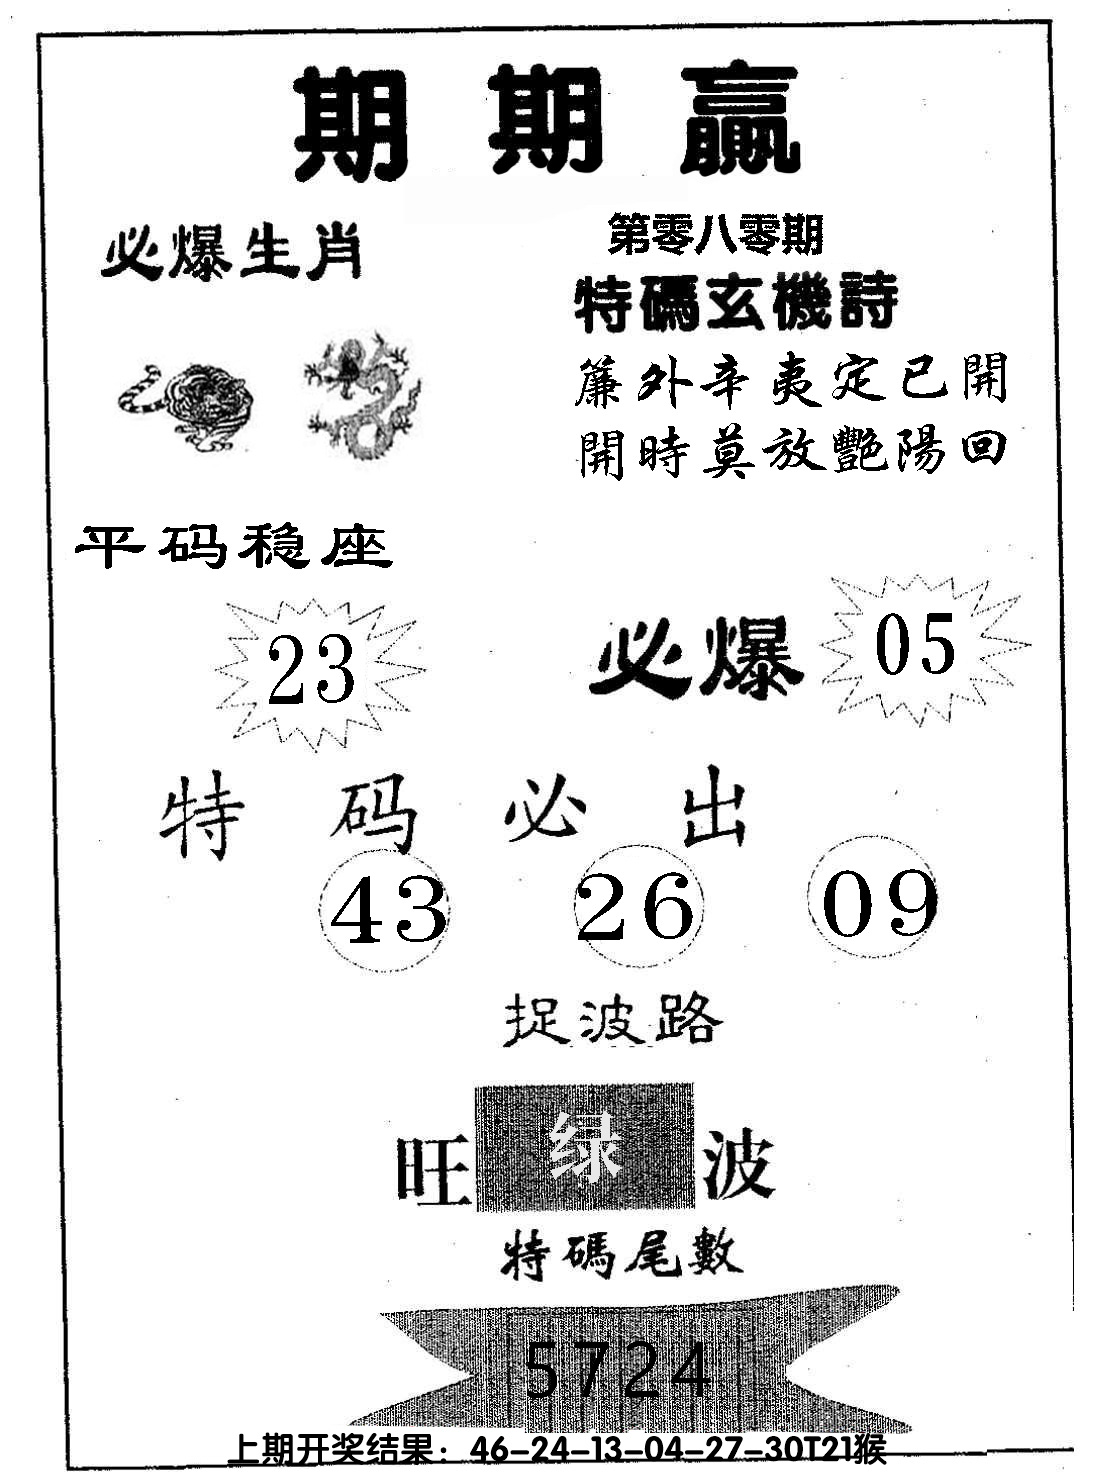 期期赢
必爆生肖
第零八零期
特碼玄機詩
簾外辛夷定已開
開時莫放艷陽回
平码稳座
23
必爆 05
特码必出
43 26 09
捉波路
旺 绿 波
特碼尾數
5724
上期开奖结果：46-24-13-04-27-30T21猴